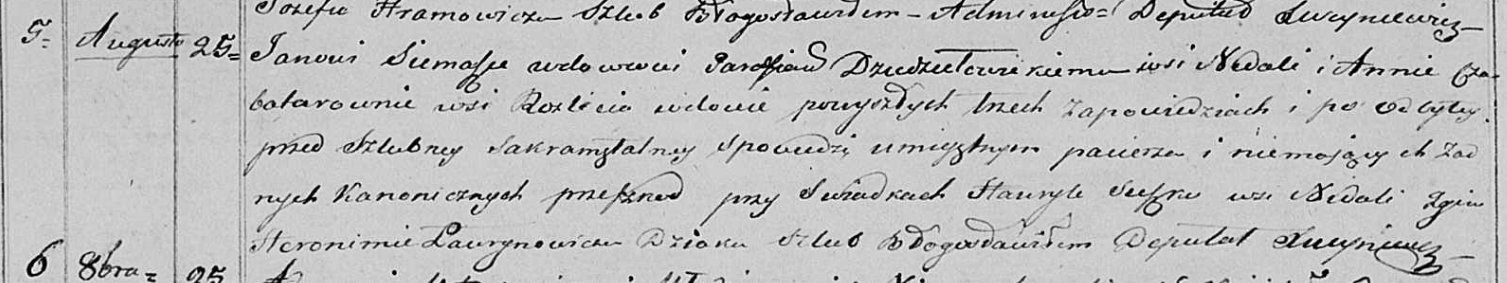 Józefie Hramowiczu Szlub Błogosławiłem – Administr= Deputad Lucyniewicz
5= Augusta 25= Janowi Siemaszce wdowcowi Parafianu Dziedziełowickiemu wsi Nidali i Annie Cza-
batarownie wsi Rozlicia wdowie powyszłych trzech zapowiedziach i po odbyłey
przed Szlubney Sakramętalney Spowiedzi umieiętnym pacierza i niemaiących żad
nych kanonicznych przeszkod przy Swiadkach Hauryle wsi Nidali
Heronimie Laurynowiczu Dziaku Szlub Błogosławiłem Deputat Lucyniewicz
6 8bra= 25